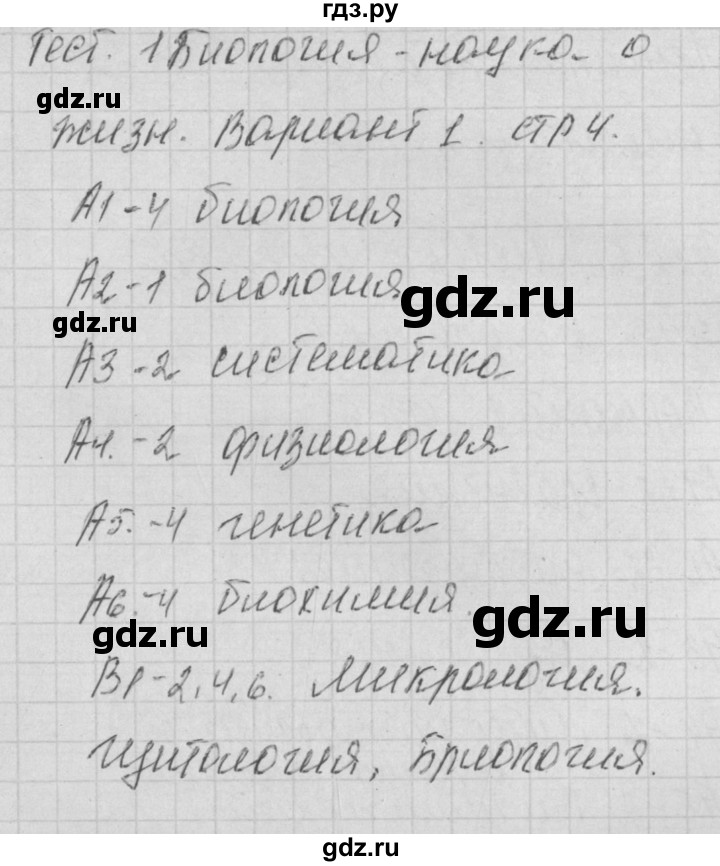 гдз.ру
Тест. 1 Биология - наука о
gdz.ru
жизн. Вариант 1. стр 4.
А1-4 биология
А2-1 биология
gdz.ru
gdz.ru
А3-2 систематика
А4.-2 физиология
А5.-4 генетика
А6.-4 биохимия.
gdz.ru
gdz.ru
В1-2,4,6. Микрология.
Цитология, Бриология.
gdz.ru